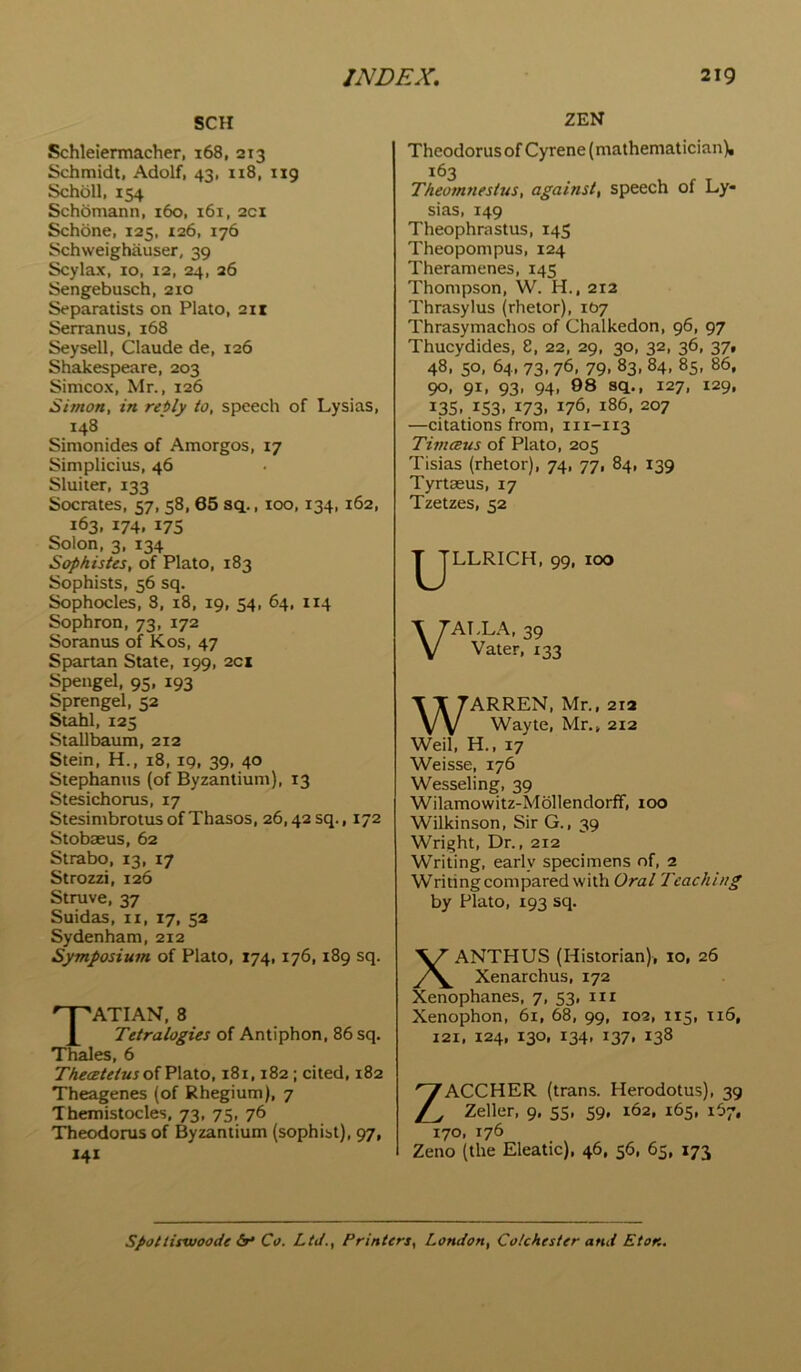 INDEX. 219
SCH
Schleiermacher, 168, 213
Schmidt, Adolf, 43, 118, 119
Schöll, 154
Schömann, 160, 161, 201
Schöne, 125, 126, 176
Schweighäuser, 39
Scylax, 10, 12, 24, 26
Sengebusch, 210
Separatists on Plato, 211
Serranus, 168
Seysell, Claude de, 126
Shakespeare, 203
Simcox, Mr., 126
Simon, in reply to, speech of Lysias,
148
Simonides of Amorgos, 17
Simplicius, 46
Sluiter, 133
Socrates, 57, 58, 65 sq., 100, 134, 162,
163, 174, 175
Solon, 3, 134
Sophistes, of Plato, 183
Sophists, 56 sq.
Sophocles, 8, 18, 19, 54, 64, 114
Sophron, 73, 172
Soranus of Kos, 47
Spartan State, 199, 201
Spengel, 95, 193
Sprengel, 52
Stahl, 125
Stallbaum, 212
Stein, H., 18, 19, 39, 40
Stephanus (of Byzantium), 13
Stesichorus, 17
Stesimbrotus of Thasos, 26, 42 sq., 172
Stobæus, 62
Strabo, 13, 17
Strozzi, 126
Struve, 37
Suidas, 11, 17, 52
Sydenham, 212
Symposium of Plato, 174, 176, 189 sq.
TATIAN, 8
Tetralogies of Antiphon, 86 sq.
Thales, 6
Theætetus of Plato, 181, 182; cited, 182
Theagenes (of Rhegium), 7
Themistocles, 73, 75, 76
Theodorus of Byzantium (sophist), 97,
141
ZEN
Theodorus of Cyrene (mathematician),
163
Theomnestus, against, speech of Ly-
sias, 149
Theophrastus, 145
Theopompus, 124
Theramenes, 145
Thompson, W. H., 212
Thrasylus (rhetor), 167
Thrasymachos of Chalkedon, 96, 97
Thucydides, 8, 22, 29, 30, 32, 36, 37,
48, 50, 64, 73, 76, 79, 83, 84, 85, 86,
90, 91, 93, 94, 98 sq., 127, 129,
135, 153, 173, 176, 186, 207
—citations from, 111-113
Timæus of Plato, 205
Tisias (rhetor), 74, 77, 84, 139
Tyrtæus, 17
Tzetzes, 52
ULLRICH, 99, 100
VALLA, 39
Vater, 133
WARREN, Mr., 212
Wayte, Mr., 212
Weil, H., 17
Weisse, 176
Wesseling, 39
Wilamowitz-Möllendorff, 100
Wilkinson, Sir G., 39
Wright, Dr., 212
Writing, early specimens of, 2
Writing compared with Oral Teaching
by Plato, 193 sq.
XANTHUS (Historian), 10, 26
Xenarchus, 172
Xenophanes, 7, 53, 111
Xenophon, 61, 68, 99, 102, 115, 116,
121, 124, 130, 134, 137, 138
ZACCHER (trans. Herodotus), 39
Zeller, 9, 55, 59, 162, 165, 167,
170, 176
Zeno (the Eleatic), 46, 56, 65, 173
Spottiswoode & Co. Ltd., Printers, London, Colchester and Eton.